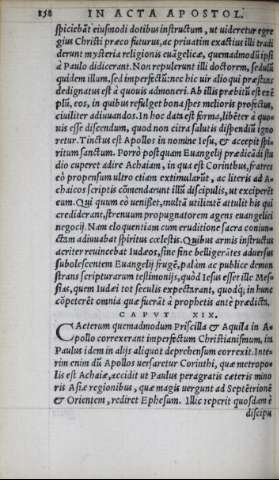 858 IN ACTA APOSTOL.
spiciebāt eiusmodi dotibus instructum, ut uideretur egre
gius Christi præco futurus, ac priuatim exactius illi tradi
derunt mysteria religionis euāgelicæ, quemadmodū ipsi
à Paulo didicerant. Non repulerunt illi doctorem, sedulū
quidem illum, sed imperfectū: nec hic uir alioqui præstans
dedignatus est à quouis admoneri. Ab illis præbitū est exē
plū, eos, in quibus refulget bona spes melioris profectus,
ciuiliter adiuuandos. In hoc data est forma, libēter à quo-
uis esse discendum, quod non citra salutis dispendiū igno
retur. Tinctus est Apollos in nomine Iesu, & accepit spi-
ritum sanctum. Porrò postquam Euangelij prædicādi stu
dio cuperet adire Achaiam, in qua est Corinthus, fratres
eò propensum ultro etiam extimularūt, ac literis ad A-
chaicos scriptis cōmendarunt illū discipulis, ut exciperēt
eum. Qui quum eò uenisset, multā utilitatē attulit his qui
crediderant, strenuum propugnatorem agens euangelici
negocij. Nam eloquentiam cum eruditione sacra coniun-
ctam adiuuabat spiritus cœlestis. Quibus armis instructus
acriter reuincebat Iudæos, sine fine belligerātes aduersus
subolescentem Euangelij frugē, palàm ac publice demon
strans scripturarum testimonijs, quòd Iesus esset ille Mes-
sias, quem Iudæi tot seculis expectarant, quodq́; in hunc
cōpeterēt omnia quæ fuerāt à prophetis antè prædicta.
CAPVT XIX.
CAeterum quemadmodum Priscilla & Aquila in A-
pollo correxerant imperfectum Christianismum, ita
Paulus idem in alijs aliquot deprehensum correxit. Inte-
rim enim dū Apollos uersaretur Corinthi, quæ metropo-
lis est Achaiæ, accidit ut Paulus peragratis cæteris mino
ris Asiæ regionibus, quæ magis uergunt ad Septētrionē
& Orientem, rediret Ephesum. Illic reperit quosdam è
discipu